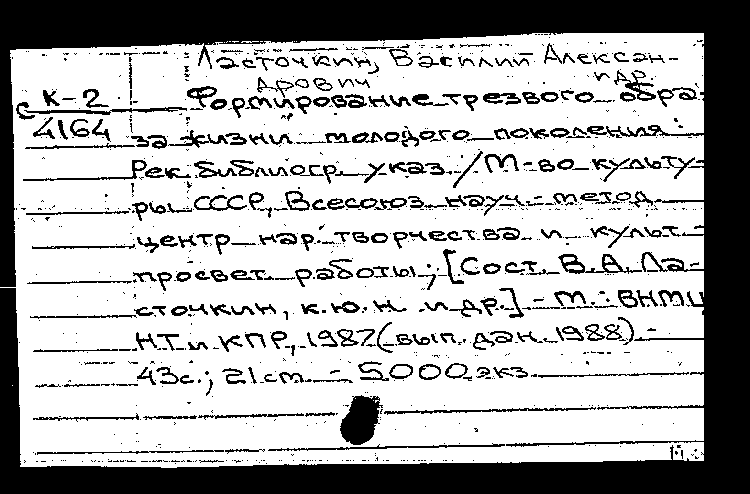 Ласточкин, Василий Алексан-
дрович и др.
К-2 Формирование трезвого обра-
с 4164 за жизни молодого поколения:
Рек. библиогр. указ. / М-во культу-
ры СССР, Всесоюз. науч.-метод.
центр нар. творчества и культ.-
просвет. работы; [Сост. В.А. Ла-
сточкин, к.ю.н. и др.] - М.: ВНМЦ
НТ и КПР, 1987 (вып. дан. 1988). -
43с.; 21 cm. - 5000 экз.